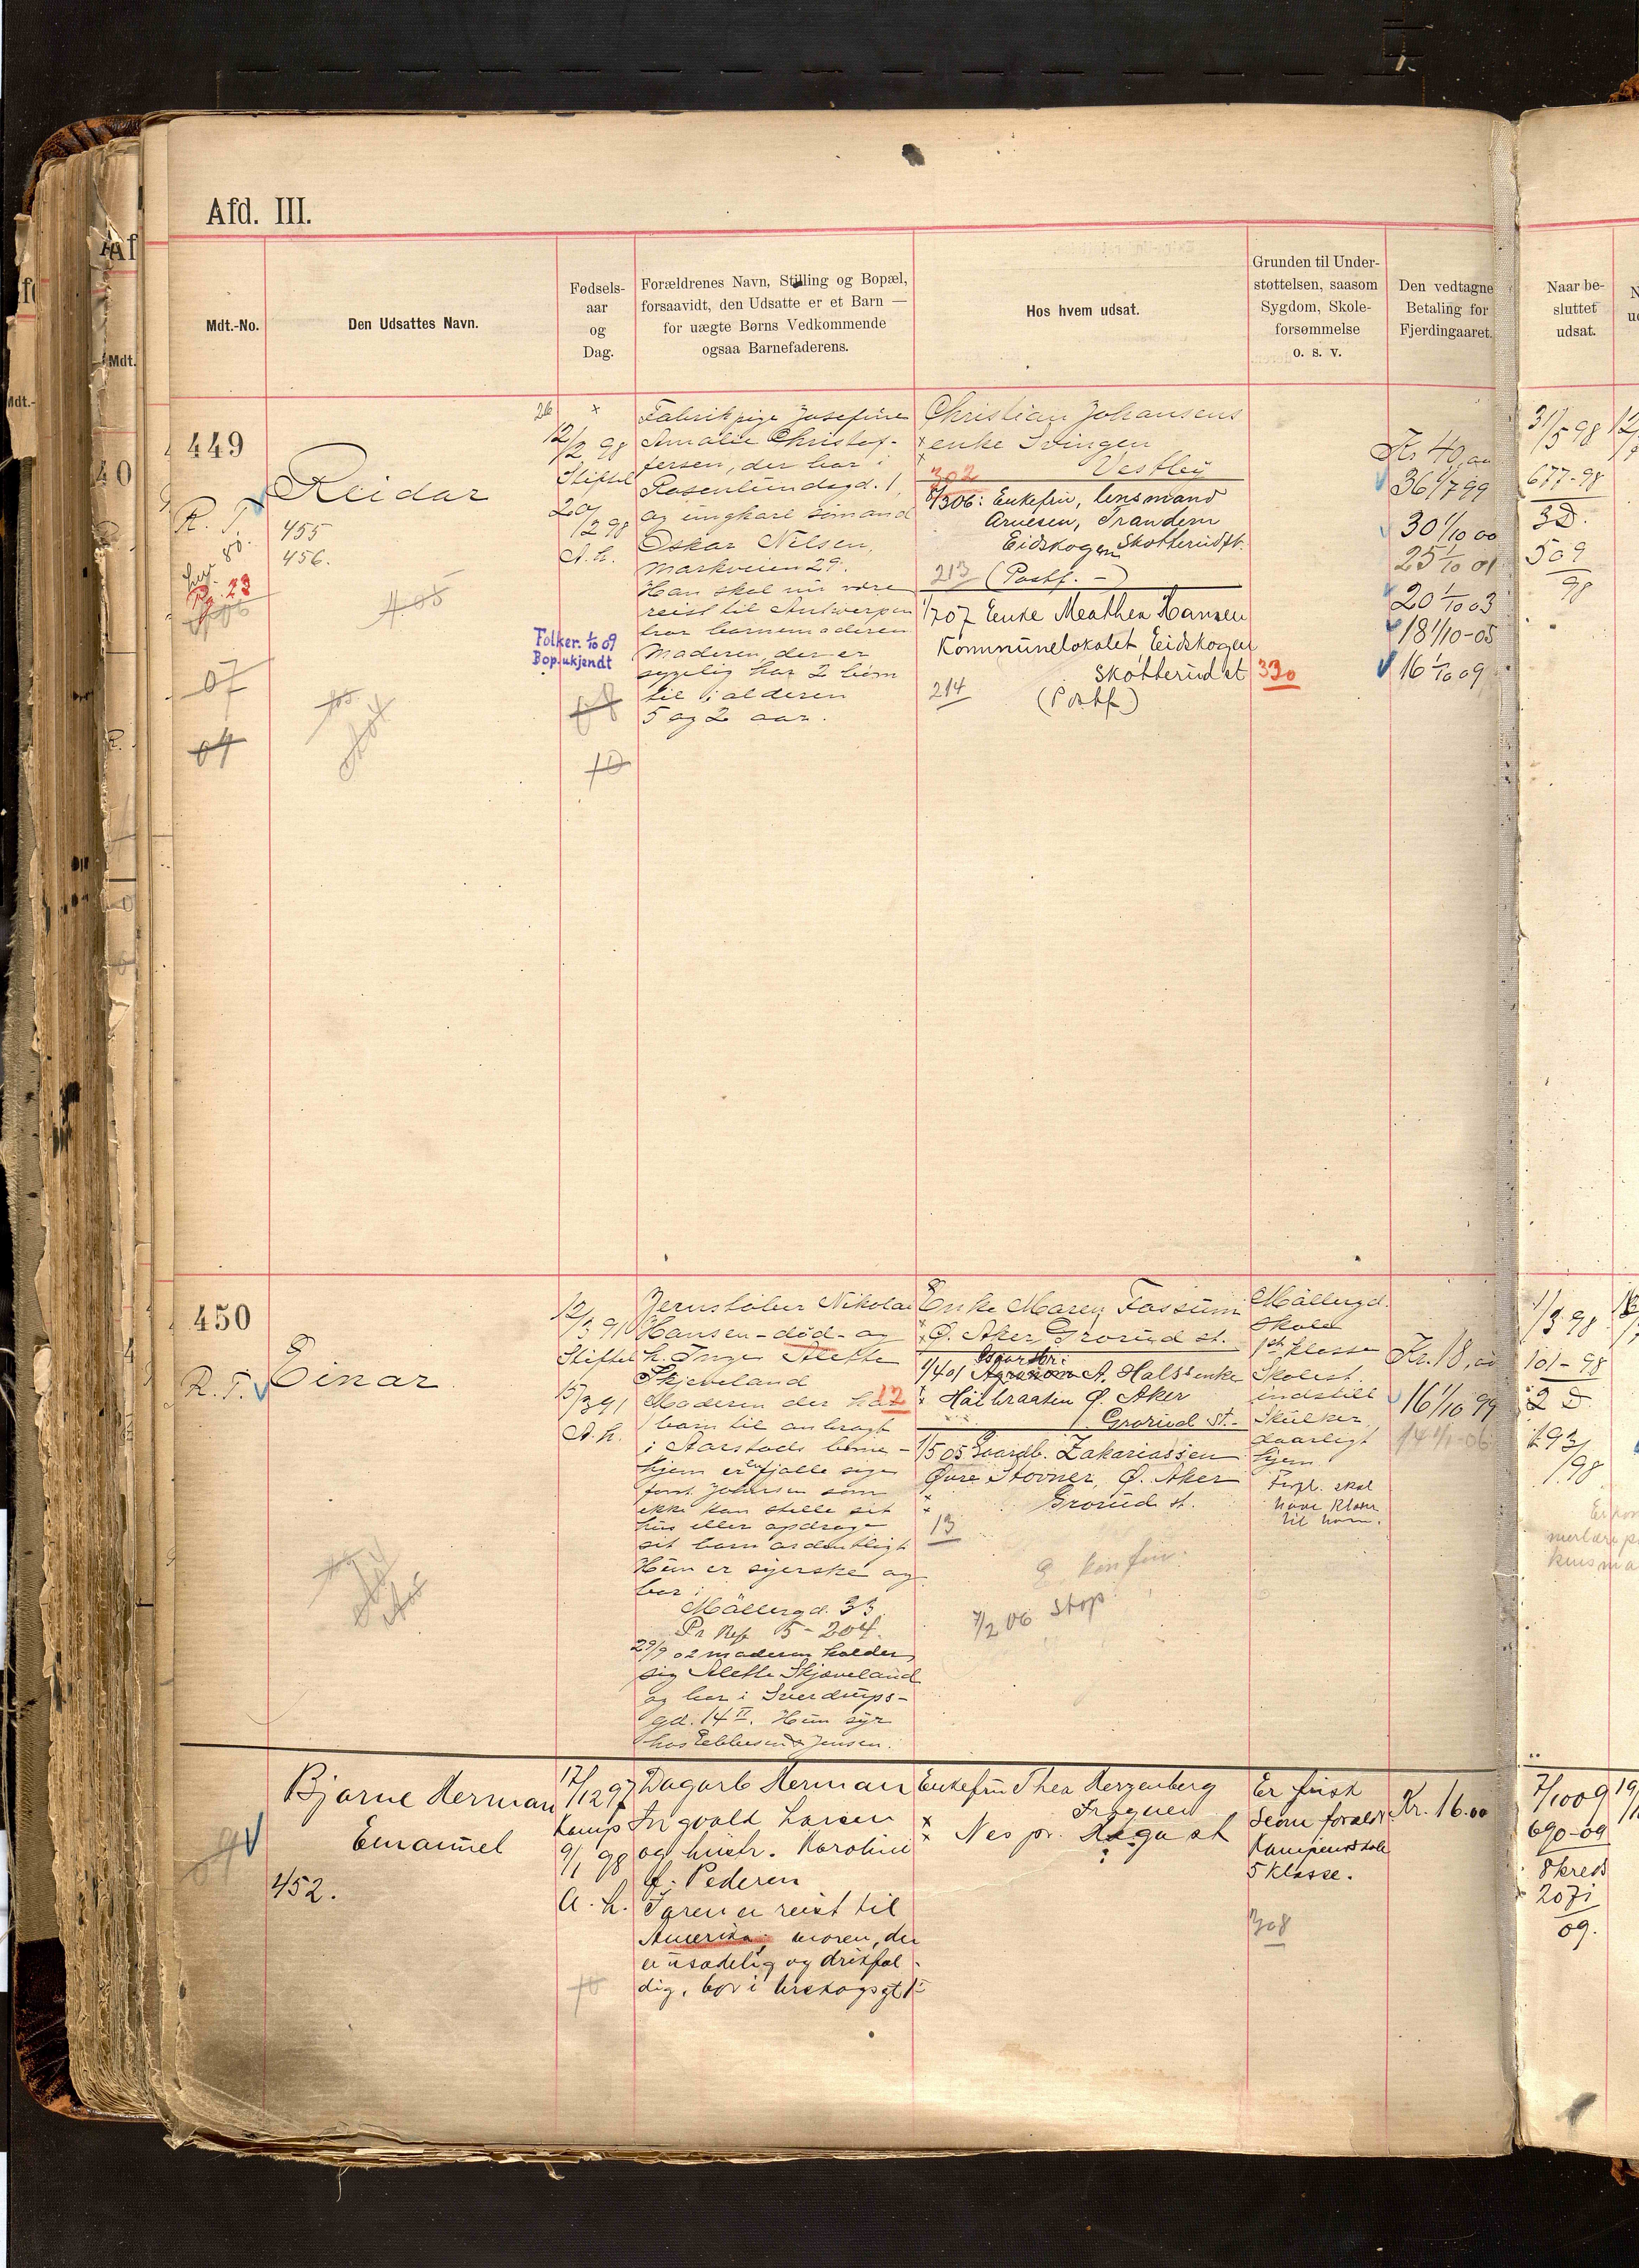 Afd. III.
Mdt.-No.
Den Udsattes Navn.
Fødsels-
aar
og
Dag.
Forældrenes Navn, Stilling og Bopæl,
forsaavidt, den Udsatte er et Barn —
for uægte Børns Vedkommende
ogsaa Barnefaderens.
Hos hvem udsat.
Grunden til Under-
støttelsen, saasom
Sygdom, Skole-
forsømmelse
o. s. v.
Den vedtagne
Betaling for
Fjerdingaaret.
Naar be-
sluttet
udsat.
449
R. T.
Reidar
455
456.
07
09
12/2 98
Stiftel
20/2 98
A. h.
Folker. 1/10 09
Bop. ukjendt
10
Fabrikpige Josefine
Amalie Christof-
fersen, der bor i
Rosenlundsgd. 1,
og ungkarl sømand
Oskar Nilsen,
Markveien 29.
Han skal nu være
reist til Antwerpen
hvor barnemoderen
Moderen, der er
sygelig har 2 børn
til i alderen
5 og 2 aar.
Christian Johansens
enke Svingen
Vestby
302
1/3 06: Enkefru, lensmand
Arnesen, Trandem
Eidskogen Skotterud st.
213 (Postf. -)
1/7 07 Enke Meathea Hansen
Kommunelokalet, Eidskogen
Skotterud st 330
214 (Postf)
Kr 40,00
36 1/7 99
30 1/10 00
25 1/10 01
20 1/10 03
18 1/10-05
16 1/10 09
31/5 98
677-98
3 D.
509
98
450
R. T.
Einar
12/3 91
Stiftel
15/3 91
A. h.
Jernstøber Nikolai
Hansen - död - og
h. Inger Alette
Skjeveland
Moderen der har 12
barn til anbragt
i Aarstads børne-
hjem er
som
ikke kan stelle sit
hus eller opdrage
sit barn ordentligt
Hun er syerske og
bor i
Møllergd. 33
Pr Rep 5 - 204.
29/9 02 moderen kalder
sig Alette Skjæveland
og bor i Sverdrups-
gd. 14 II. Hun syr
hos Ebbesen & Jensen.
Enke Maren Fossum
Ø. Aker, Grorud st.
Gaardbr:
1/4 01 Agronom A. Hals's enke
Høibraaten Ø. Aker
Grorud St.-
1/5 05 Gaardb. Zakariassen
Øvre Stovner, Ø. Aker
Grorud st.
13
E. konfir.
7/2 06 Stop!
Møllergd.
Skole
1ste klasse
Skolest.
indstill
Skulker
daarligt
hjem.
Forpl. skal
have klær
til ham.
Kr. 18,00
16 1/10 99
14 1/1-06
1/3 98
101-98
2 D.
193
98
Bjarne Herman
Emanuel
452.
17/12 97
Kamp
9/1 98
A. h.
10
Dagarb. Herman
Ingvald Larsen
og hustr. Karoline
f. Pedersen
Faren er reist til
Amerika; moren, der
er usædelig og drikfæl-
dig, bor i Urskogsgt
Enkefru Thea Herzenberg
Frogner
Nes pr. Haga st
Er frisk
Scene forældr
Kampens skole
5 Klasse.
308
Kr. 16.00
7/10 09
690-09
8 kreds
207i
09.